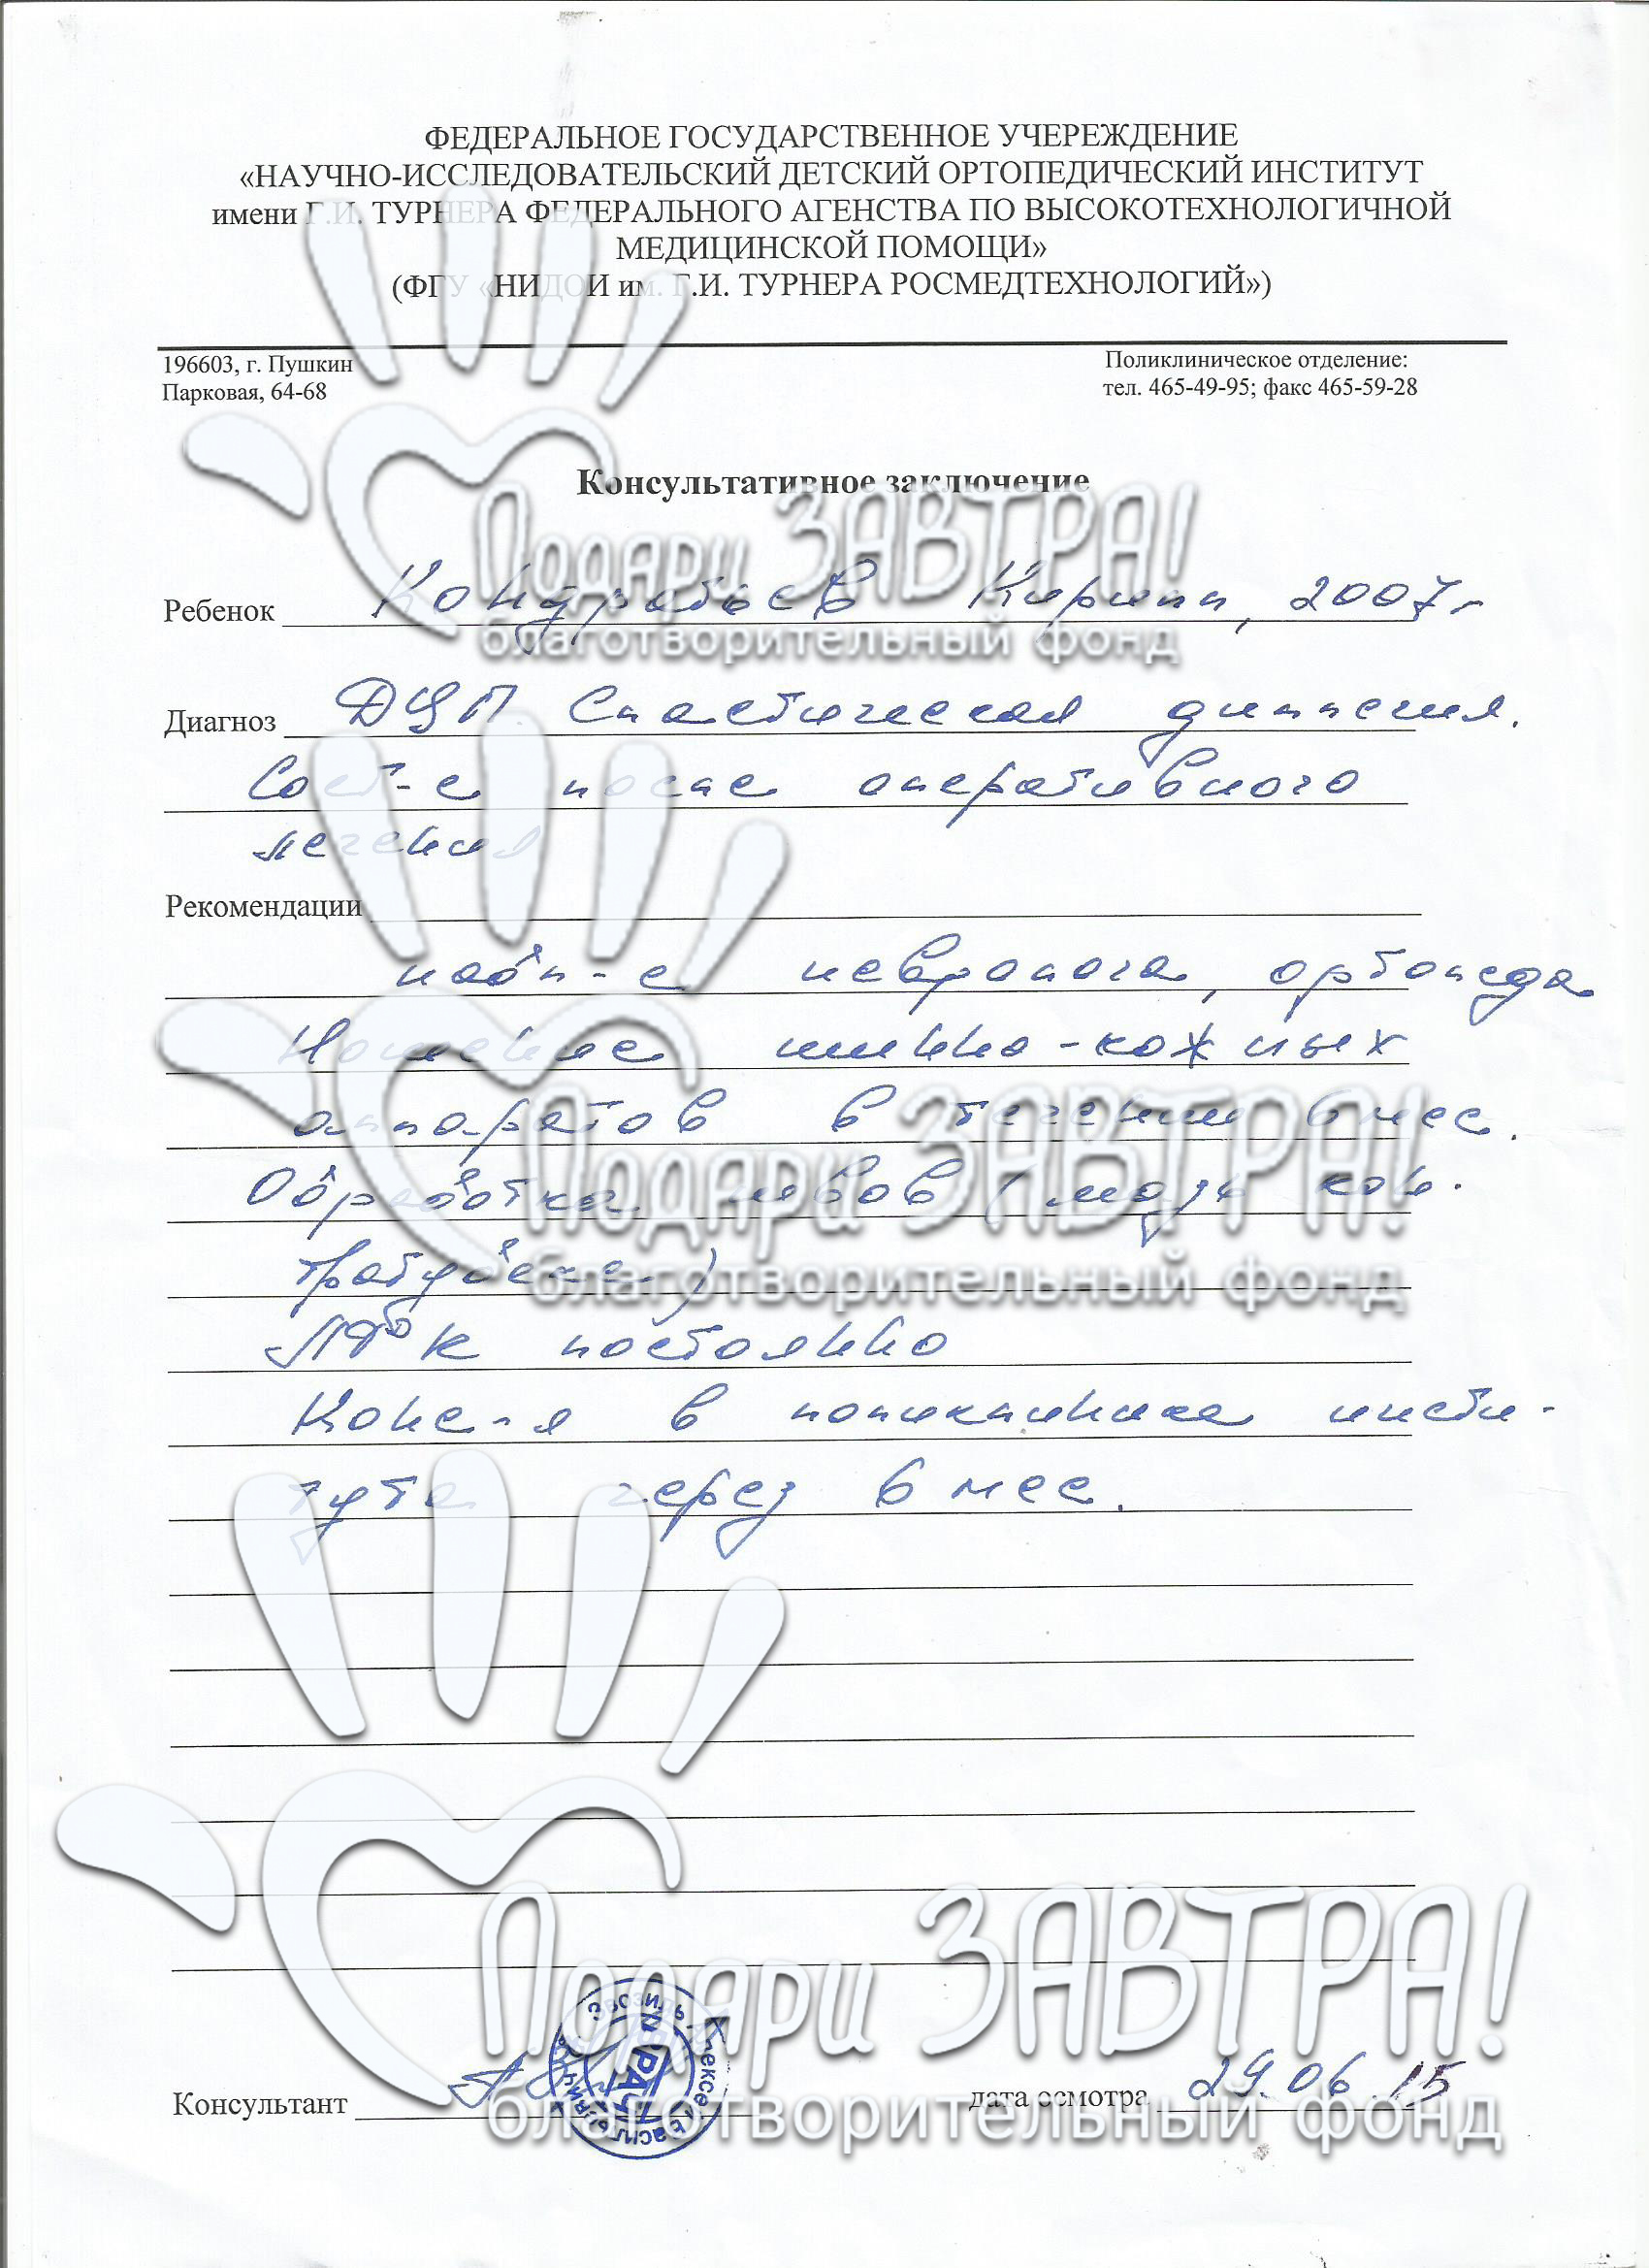 ФЕДЕРАЛЬНОЕ ГОСУДАРСТВЕННОЕ УЧЕРЕЖДЕНИЕ
«НАУЧНО-ИССЛЕДОВАТЕЛЬСКИЙ ДЕТСКИЙ ОРТОПЕДИЧЕСКИЙ ИНСТИТУТ
имени Г.И. ТУРНЕРА ФЕДЕРАЛЬНОГО АГЕНСТВА ПО ВЫСОКОТЕХНОЛОГИЧНОЙ
МЕДИЦИНСКОЙ ПОМОЩИ»
(ФГУ «НИДОИ им. Г.И. ТУРНЕРА РОСМЕДТЕХНОЛОГИЙ»)
196603, г. Пушкин
Парковая, 64-68
Поликлиническое отделение:
тел. 465-49-95; факс 465-59-28
Консультативное заключение
Подари ЗАВТРА!
Ребенок Кондратьев Кирилл, 2007г
благотворительный фонд
Диагноз ДЦП. Спастическая диплегия.
Сост-е после оперативного
лечения
Рекомендации
набл-е невролога, ортопеда
Ношение шинно-кожных
аппаратов в течении 6 мес.
Подари ЗАВТРА!
Обработка швов (мазь кон-
трактубекс)
благотворительный фонд
ЛФК постоянно
Конс-я в поликлинике инсти-
тута через 6 мес.
Подари ЗАВТРА!
Консультант
дата осмотра 24.06.15
благотворительный фонд
ВРАЧ
Алексей Васильевич